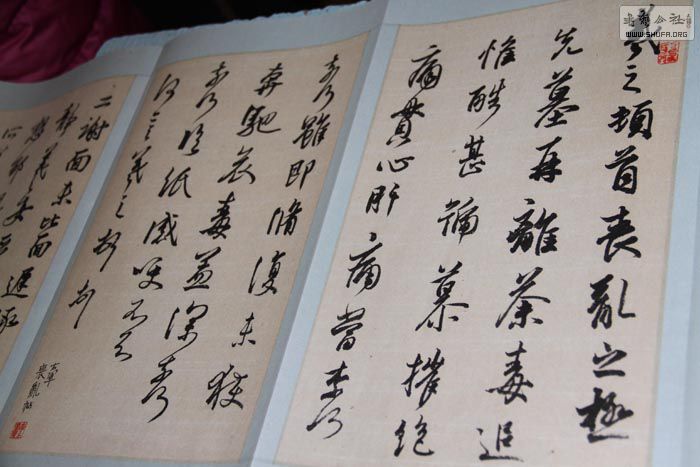 羲之頓首喪亂之極
先墓再離荼毒追
惟酷甚號慕摧絕
痛貫心肝痛當奈何
奈何雖即脩復未獲
奔馳哀毒益深奈何
奈何臨紙感哽不知
何言羲之頓首頓首
喪亂帖
二謝面未比面遲詠
书法公社
WWW.SHUFA.ORG